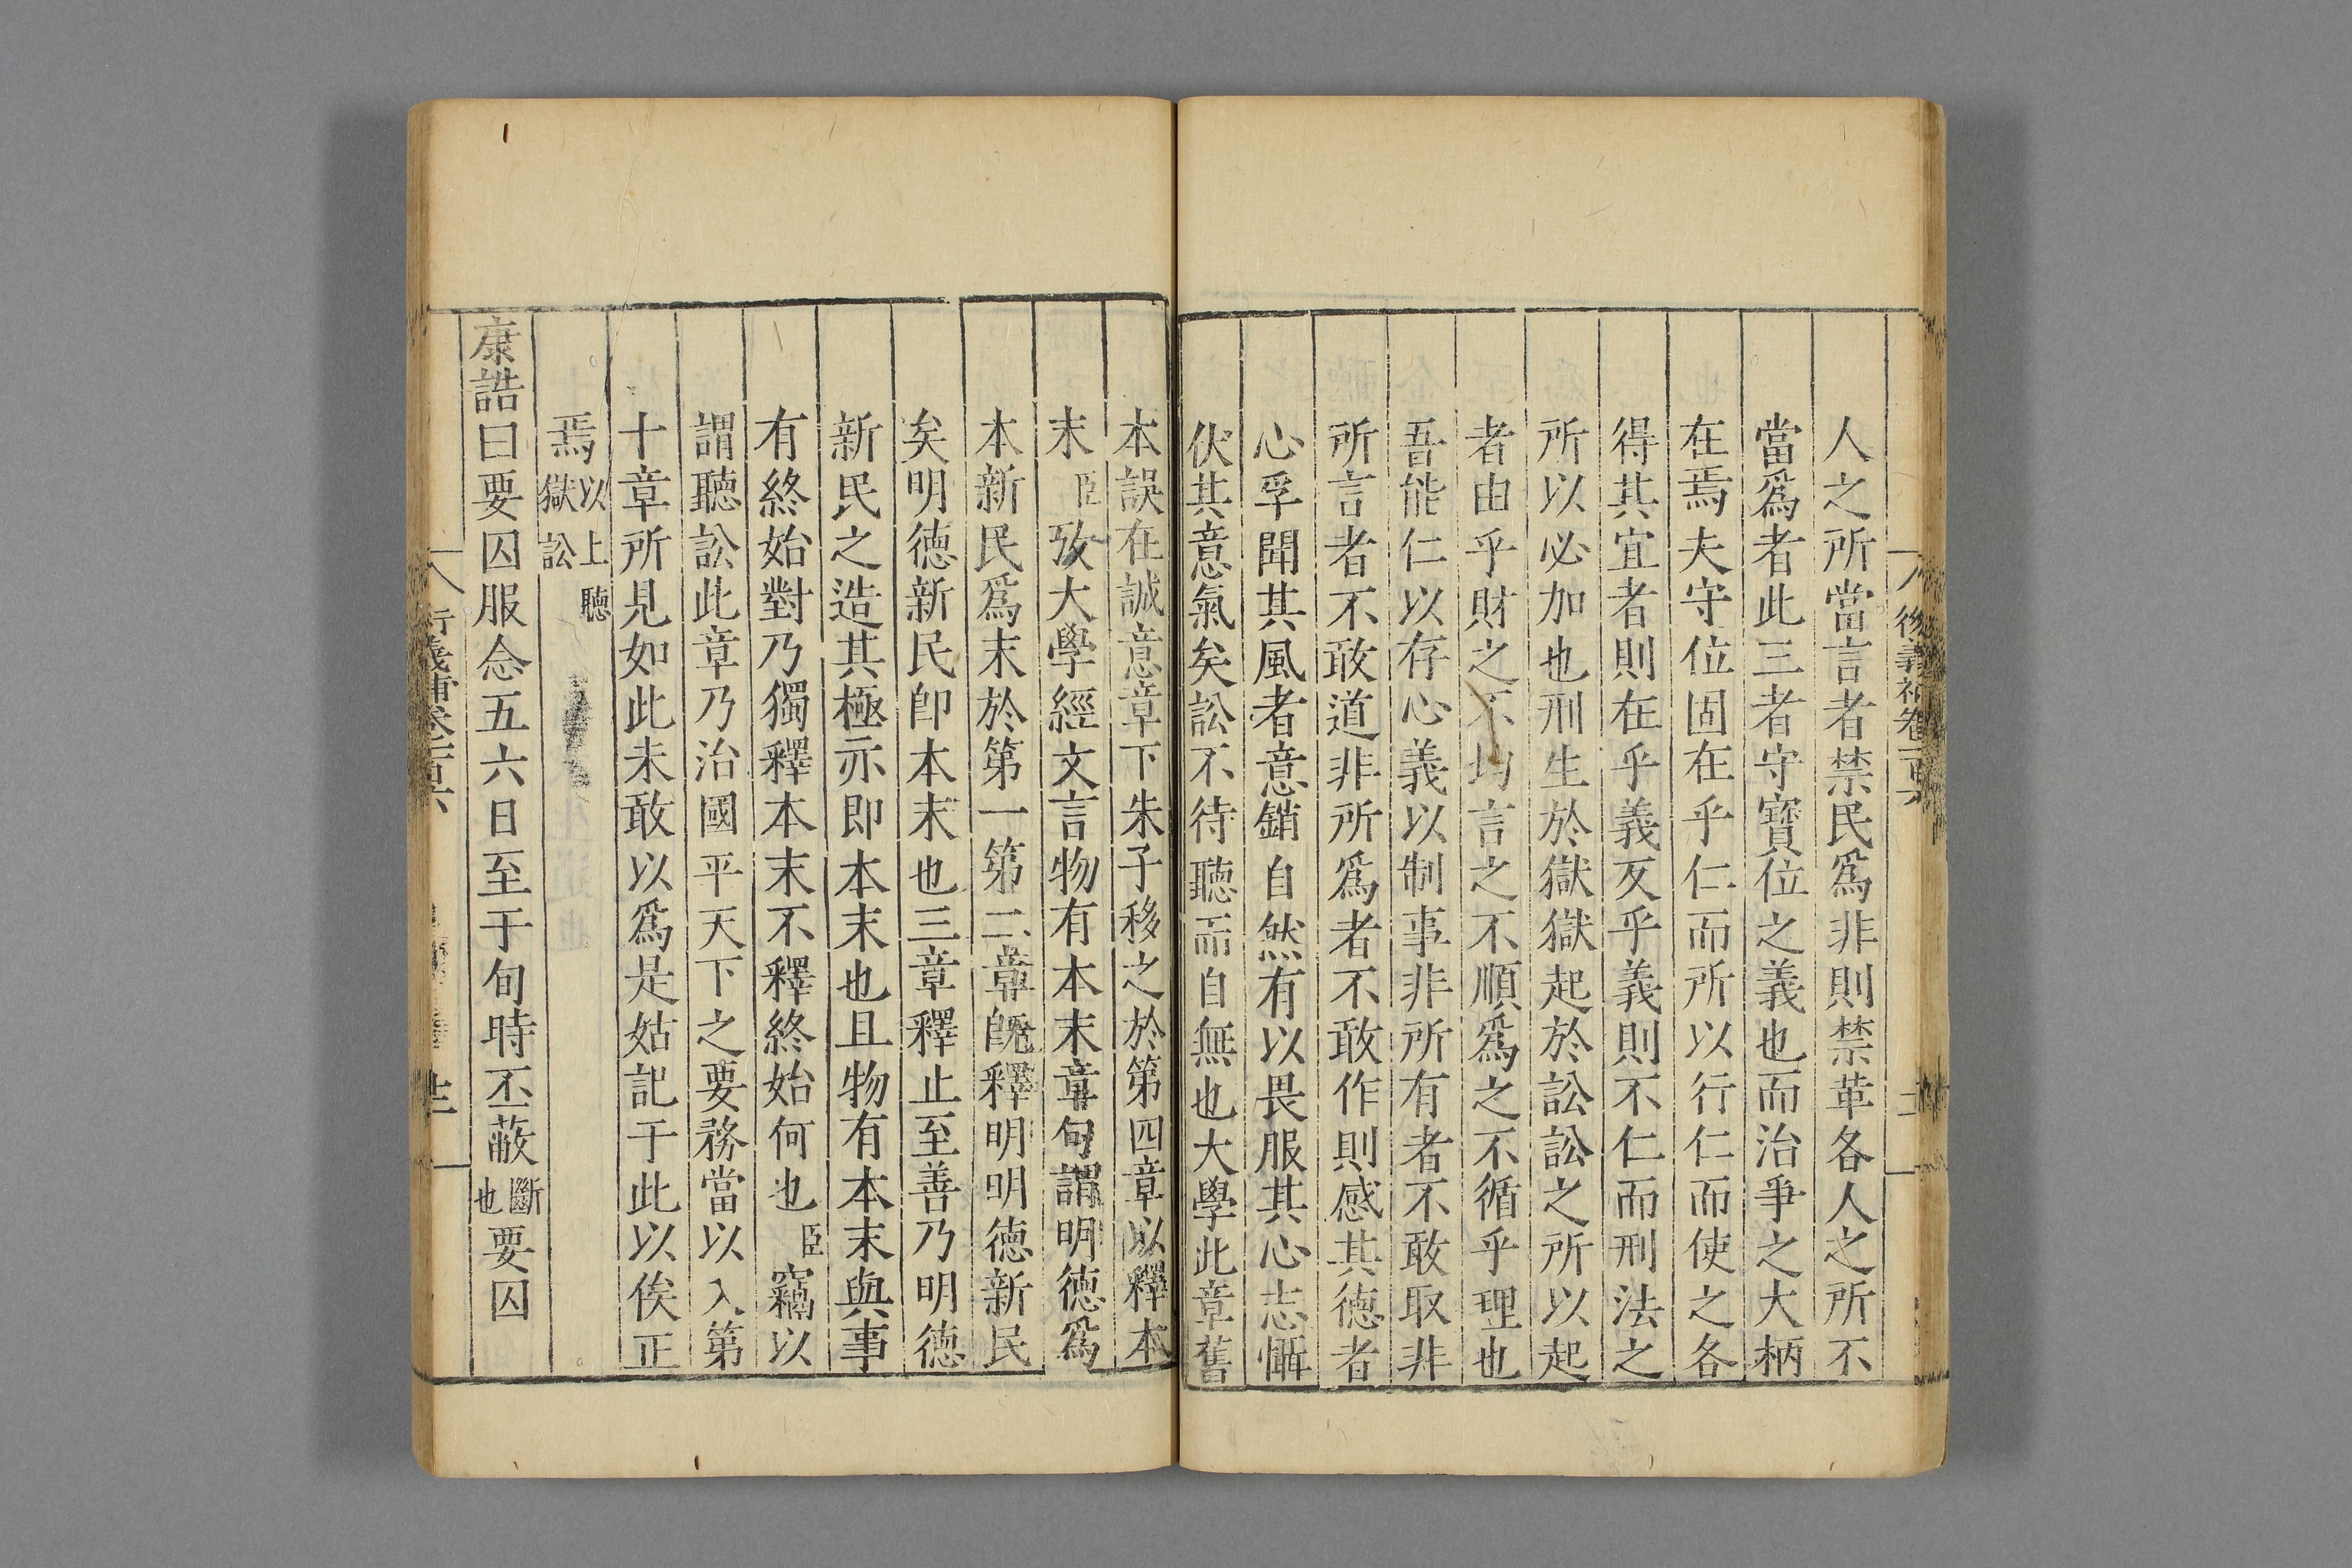 人之所當言者禁民爲非則禁革各人之所不
當爲者此三者守寶位之義也而治爭之大柄
在焉夫守位固在乎仁而所以行仁而使之各
得其宜者則在乎義反乎義則不仁而刑法之
所以必加也刑生於獄獄起於訟訟之所以起
者由乎財之不均言之不順爲之不循乎理也
吾能仁以存心義以制事非所有者不敢取非
所言者不敢道非所爲者不敢作則感其德者
心孚聞其風者意銷自然有以畏服其心志懾
伏其意氣矣訟不待聽而自無也大學此章舊
本誤在誠意章下朱子移之於第四章以釋本
末臣攷大學經文言物有本末章句謂明德爲
本新民爲末於第一第二章旣釋明明德新民
矣明德新民卽本末也三章釋止至善乃明德
新民之造其極亦即本末也且物有本末與事
有終始對乃獨釋本末不釋終始何也臣竊以
謂聽訟此章乃治國平天下之要務當以入第
十章所見如此未敢以爲是姑記于此以俟正
焉以上聽獄訟
康誥曰要囚服念五六日至于旬時丕蔽斷也要囚